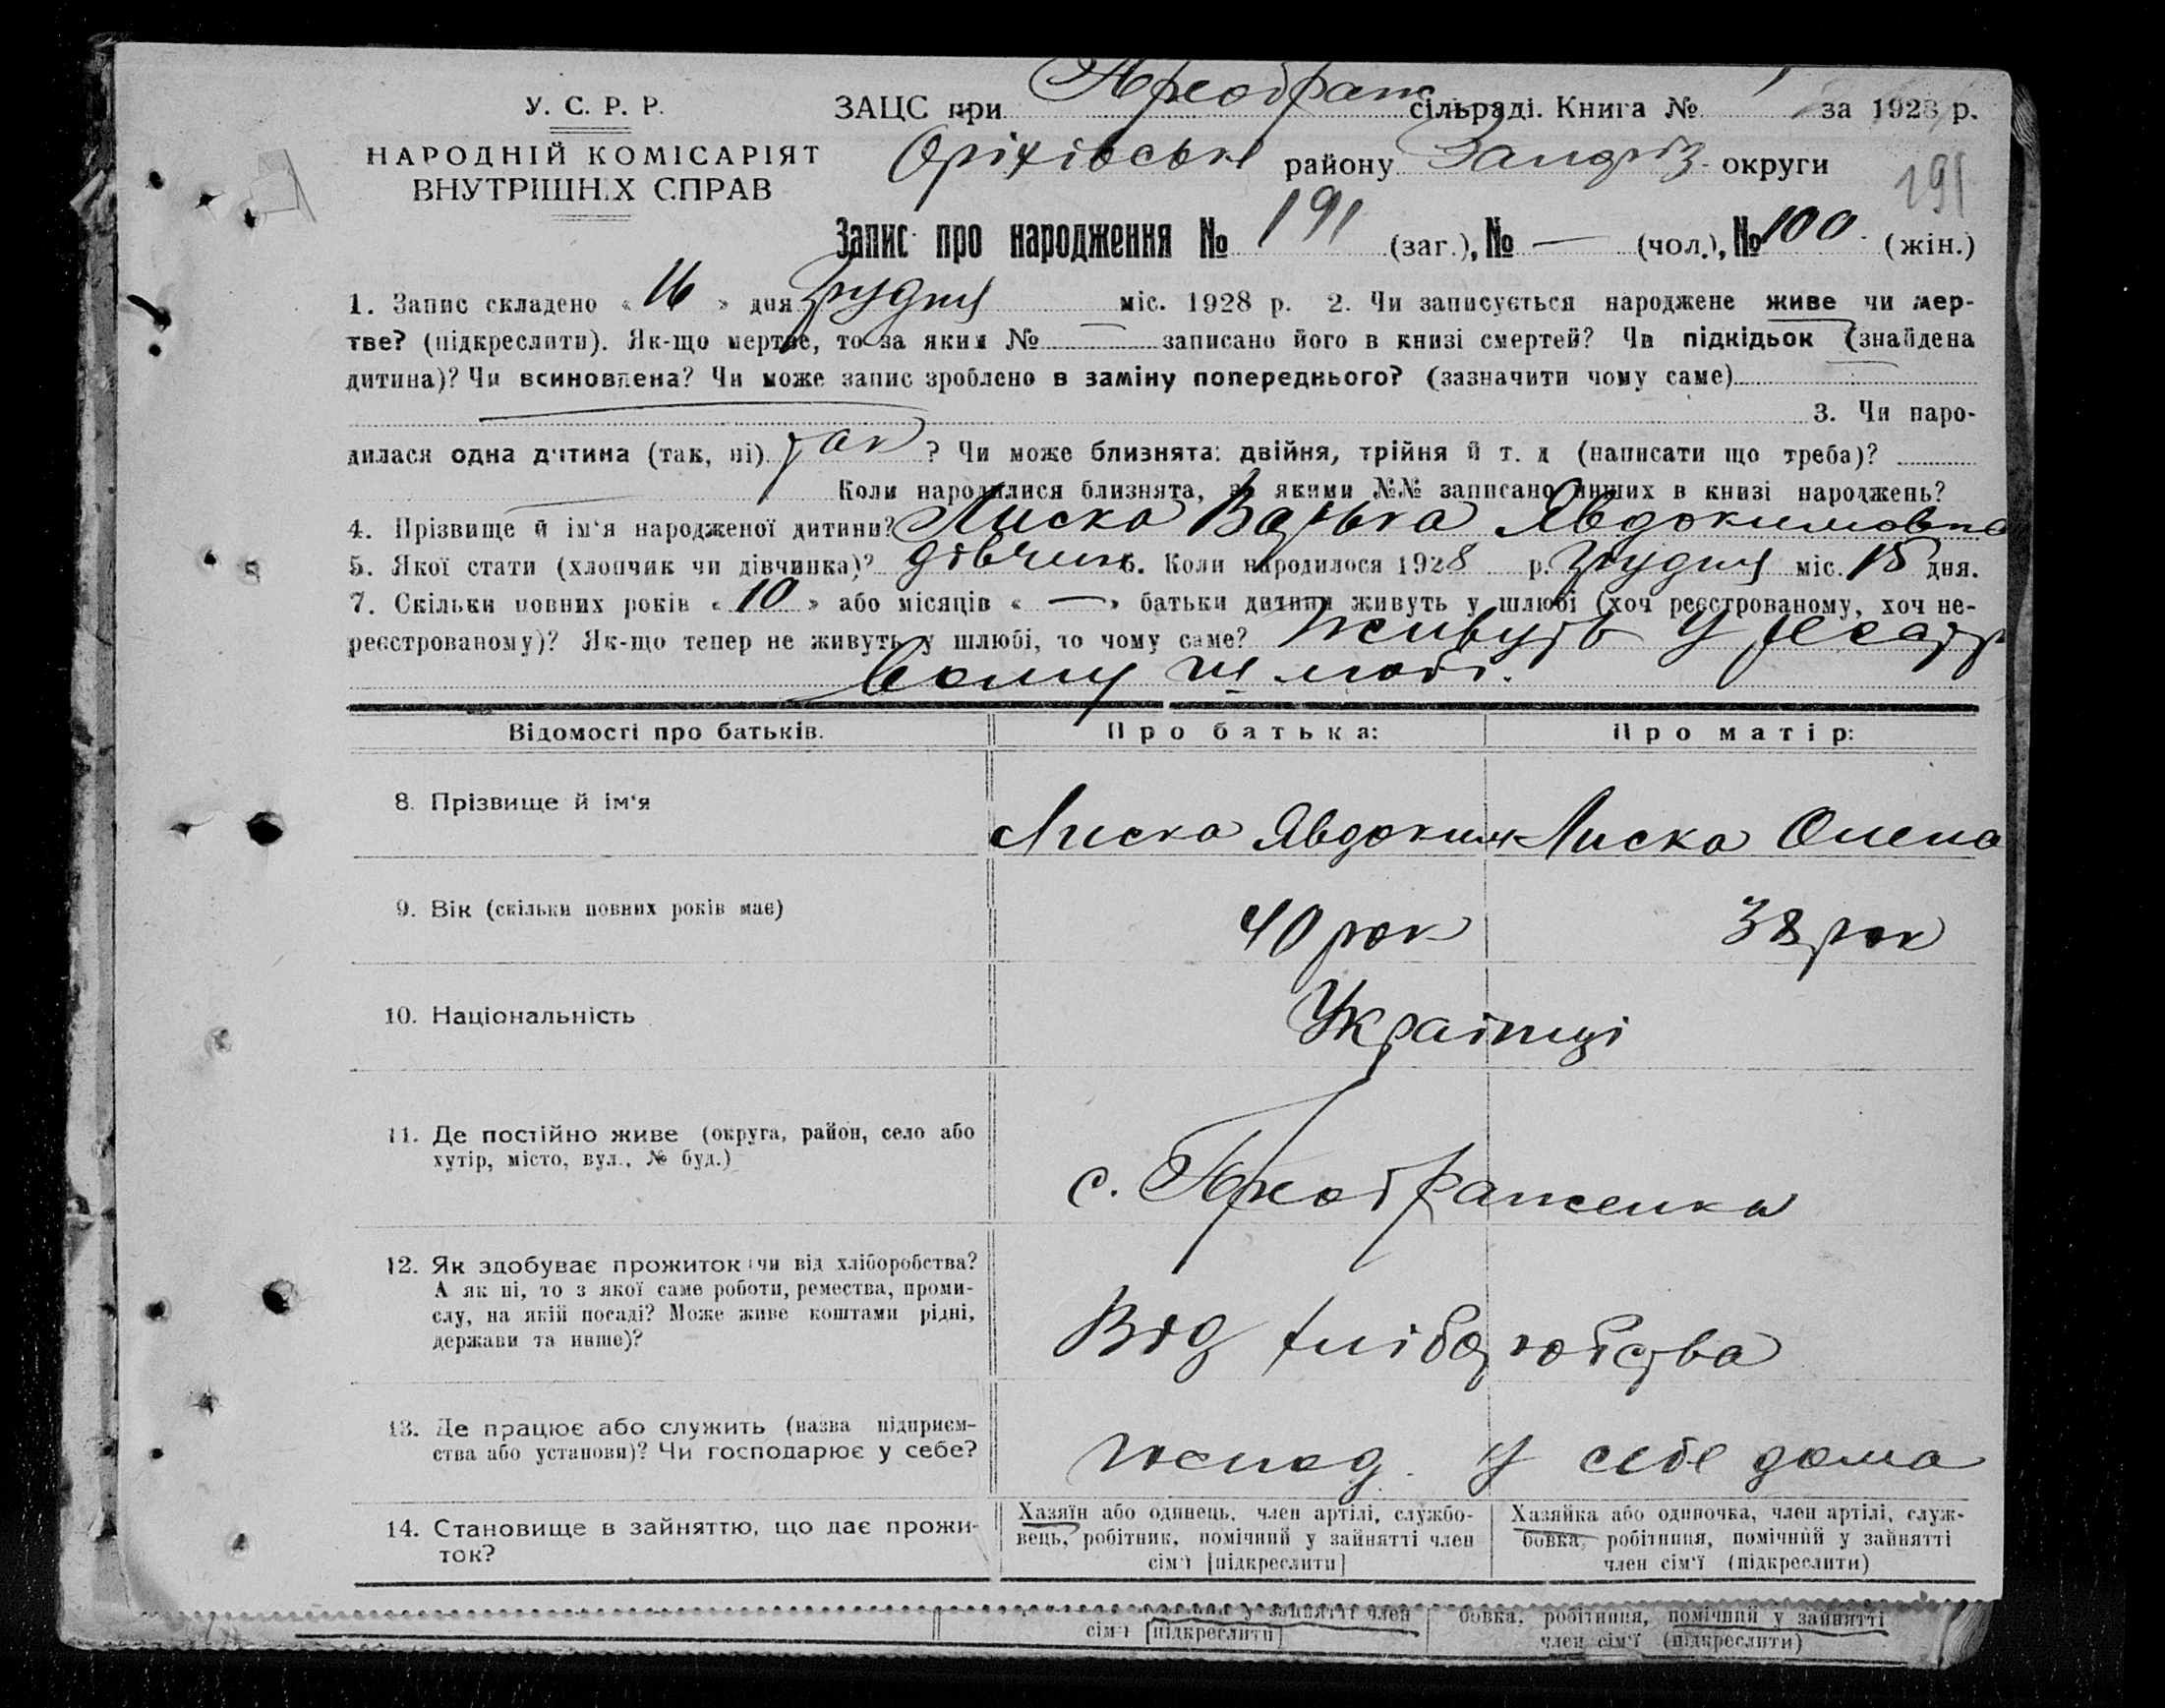 У. С. Р. Р.
НАРОДНІЙ КОМІСАРІЯТ
ВНУТРІШН.Х СПРАВ
ЗАЦС при Преображ сільраді. Книга № 1 за 1928 р.
Оріхівське району Запоріз. округи
191
Запис про народження № 191 (заг.), № — (чол.), № 100. (жін.)
1. Запис складено « 16 » дня грудня міс. 1928 р. 2. Чи записується народжене живе чи мер-
тве? (підкреслити). Як-що мертве, то за яким № — записано його в книзі смертей? Чи підкідьок (знайдена
дитина)? Чи всиновлена? Чи може запис зроблено в заміну попереднього? (зазначити чому саме)
3. Чи наро-
дилася одна дитина (так, ні) так ? Чи може близнята: двійня, трійня й т. д (написати що треба)?
Коли народилися близнята, за якими №№ записано инших в книзі народжень?
4. Прізвище й ім'я народженої дитини? Лиска Варька Явдокимовна
5. Якої стати (хлопчик чи дівчинка)? дівчин 6. Коли народилося 1928 р. грудня міс. 15 дня.
7. Скільки повних років « 10 » або місяців « — » батьки дитини живуть у шлюбі (хоч реєстрованому, хоч не-
реєстрованому)? Як-що тепер не живуть у шлюбі, то чому саме? живуть у
вому шлюбі.
Відомості про батьків. Про батька: Про матір:
8. Прізвище й ім'я Лиска Явдоким Лиска Олена
9. Вік (скільки повних років має) 40 рок 38 рок
10. Національність Українці
11. Де постійно живе (округа, район, село або
хутір, місто, вул., № буд.) с. Преображенка
12. Як здобуває прожиток: чи від хліборобства?
А як ні, то з якої саме роботи, ремества, проми-
слу, на якій посаді? Може живе коштами рідні,
держави та инше)? Від хліборобства
13. Де працює або служить (назва підприєм-
ства або установи)? Чи господарює у себе? господ. у себе дома
14. Становище в зайняттю, що дає прожи-
ток?
Хазяїн або одинець, член артілі, службо-
вець, робітник, помічний у зайнятті член
сім'ї [підкреслити]
Хазяйка або одиночка, член артілі, служ-
бовка, робітниця, помічний у зайнятті
член сім'ї (підкреслити)
у зайнятті член
сім'ї [підкреслити]
бовка, робітниця, помічний у зайнятті
член сім'ї (підкреслити)